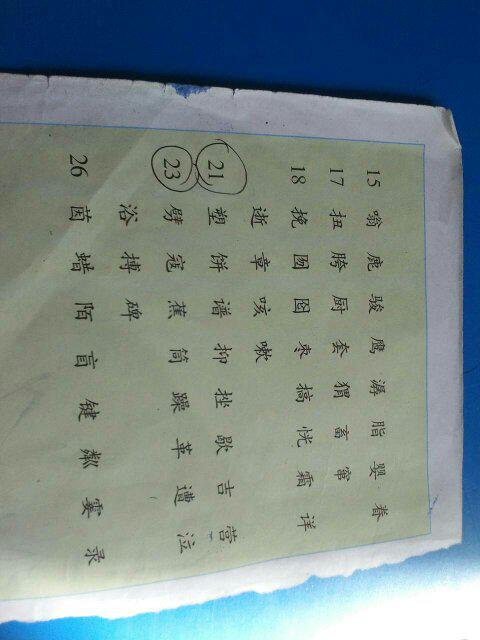 15 嗡 鹿 骏 鹰 潺 脂 婴 眷
17 扭 胯 厨 套 猬 畜 窜
18 挽 囫 囵 枣 搞 恍 霜 详
逝 章 咳 嗽
21 塑 饼 谱 抑 挫 歇 吉 营
23 劈 寇 蕉 筒 躁 革 遭 泣
浴 搏 碑
26 茵 蜡 陌 盲 键 粼 霎 录